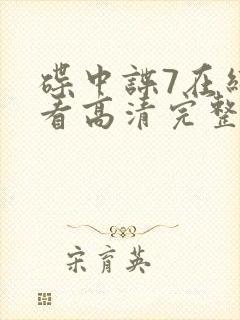 碟中諜7在
看高清完整
宋育英